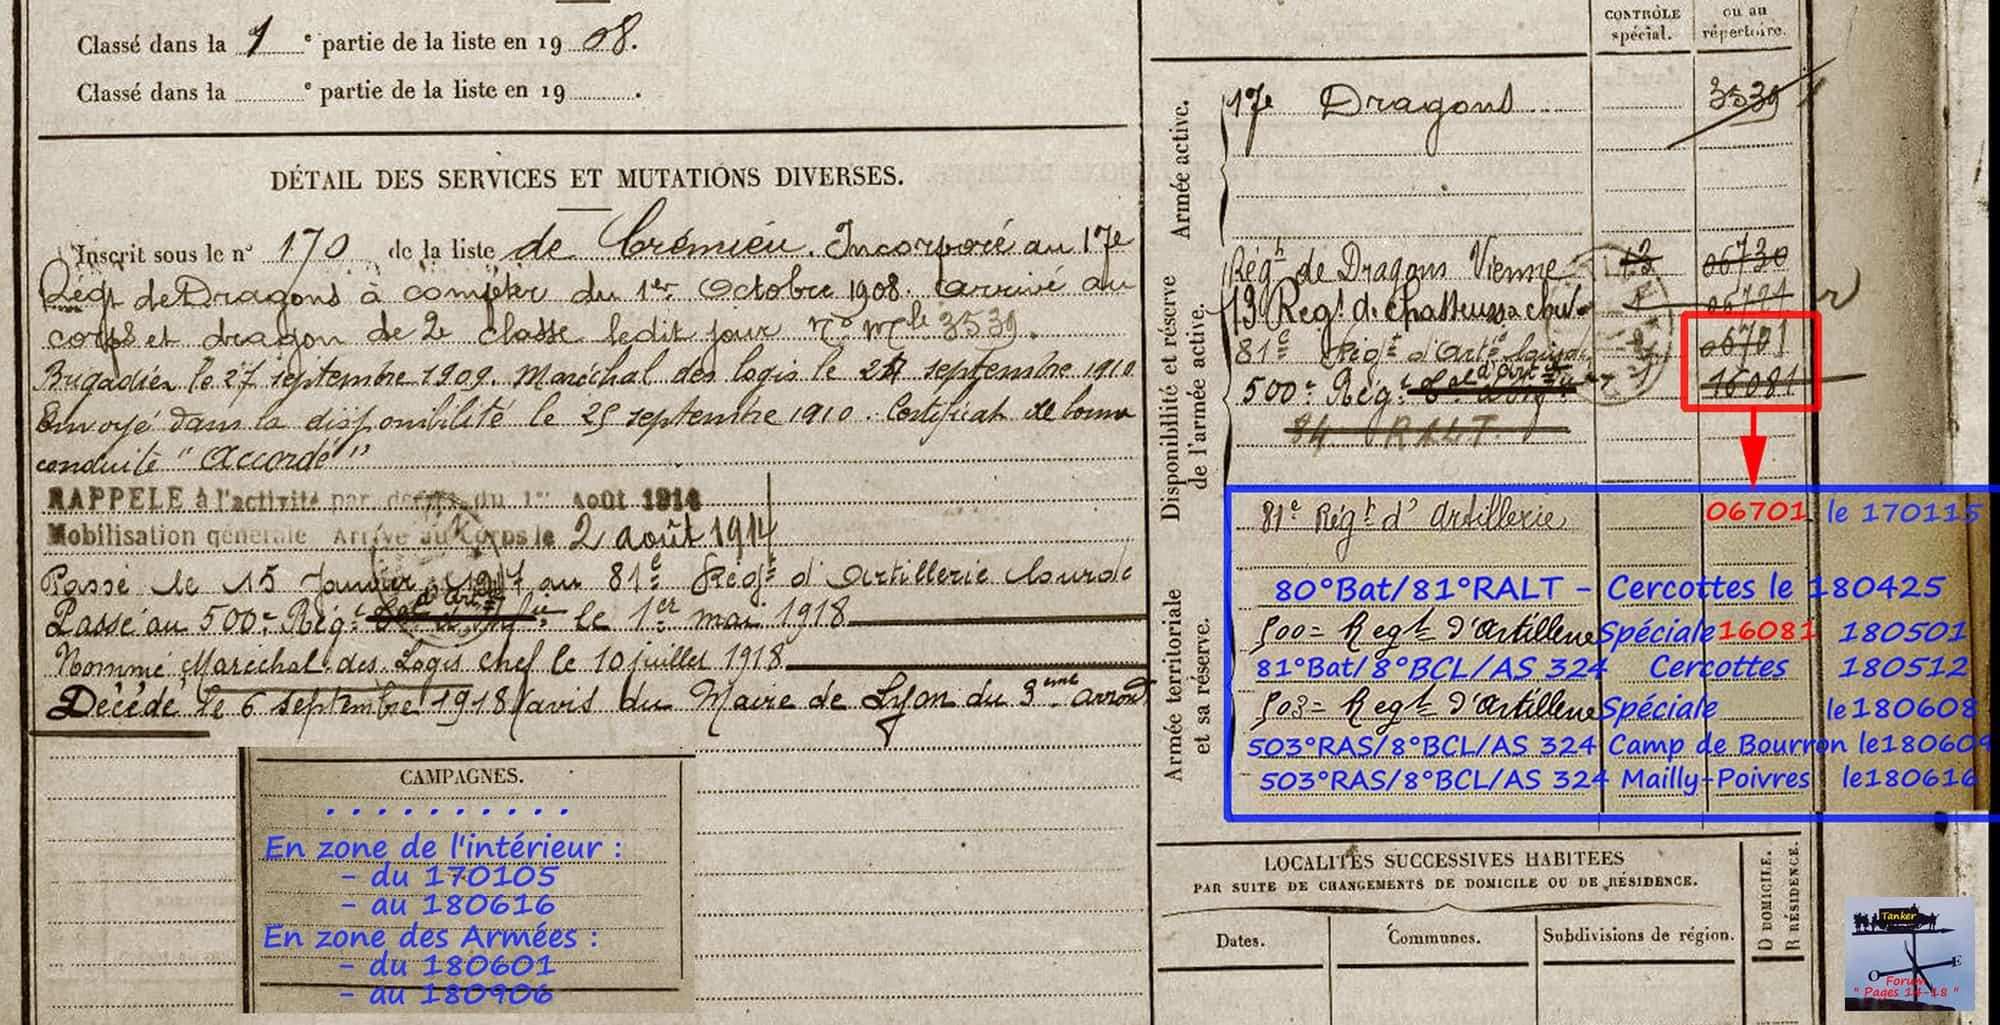 Classé dans la 1 e partie de la liste en 19 08.
Classé dans la e partie de la liste en 19 .
DÉTAIL DES SERVICES ET MUTATIONS DIVERSES.
Inscrit sous le n° 170 de la liste de Crémieu. Incorporé au 17e
Régt de Dragons à compter du 1er Octobre 1908. Arrivé au
corps et dragon de 2e classe ledit jour n° mle 3539.
Brigadier le 27 septembre 1909. Maréchal des logis le 24 septembre 1910
Envoyé dans la disponibilité le 25 septembre 1910. Certificat de bonne
conduite "Accordé"
RAPPELÉ à l'activité par décret du 1er Août 1914
Mobilisation générale Arrivé au Corps le 2 août 1914
Passé le 15 Janvier 1917 au 81e Régt d'Artillerie lourde
Passé au 500e Régt d'Artie le 1er mai 1918
Nommé Maréchal des Logis chef le 10 juillet 1918
Décédé le 6 septembre 1918 (avis du Maire de Lyon du 3eme arrondt
CAMPAGNES.
. . . . . . . . . .
En zone de l'intérieur :
- du 170105
- au 180616
En zone des Armées :
- du 180601
- au 180906
CONTRÔLE
spécial.
ou au
répertoire.
Armée active.
17e Dragons 3539
Disponibilité et réserve
de l'armée active.
Régt de Dragons Vienne 13 06730
13 Regt de chasseurs a chev. 06721
81e Régt d'Artie lourde 06701
500e Régt d'Artie 16081
84 RALT.
Armée territoriale
et sa réserve.
81e Régt d'Artillerie 06701 le 170115
80°Bat/81°RALT - Cercottes le 180425
500e Regt d'Artillerie Spéciale 16081 180501
81°Bat/8°BCL/AS 324 Cercottes 180512
503e Regt d'Artillerie Spéciale le 180608
503°RAS/8°BCL/AS 324 Camp de Bourron le180609
503°RAS/8°BCL/AS 324 Mailly-Poivres le180616
LOCALITÉS SUCCESSIVES HABITÉES
PAR SUITE DE CHANGEMENTS DE DOMICILE OU DE RÉSIDENCE.
Dates.
Communes.
Subdivisions de région.
D DOMICILE.
R RÉSIDENCE.
Tanker
O E
Forum
" Pages 14-18 "